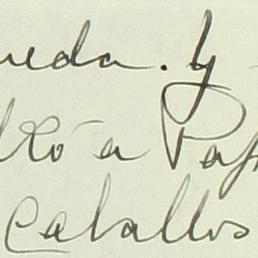 ueda. y
lló a Pap
Caballos